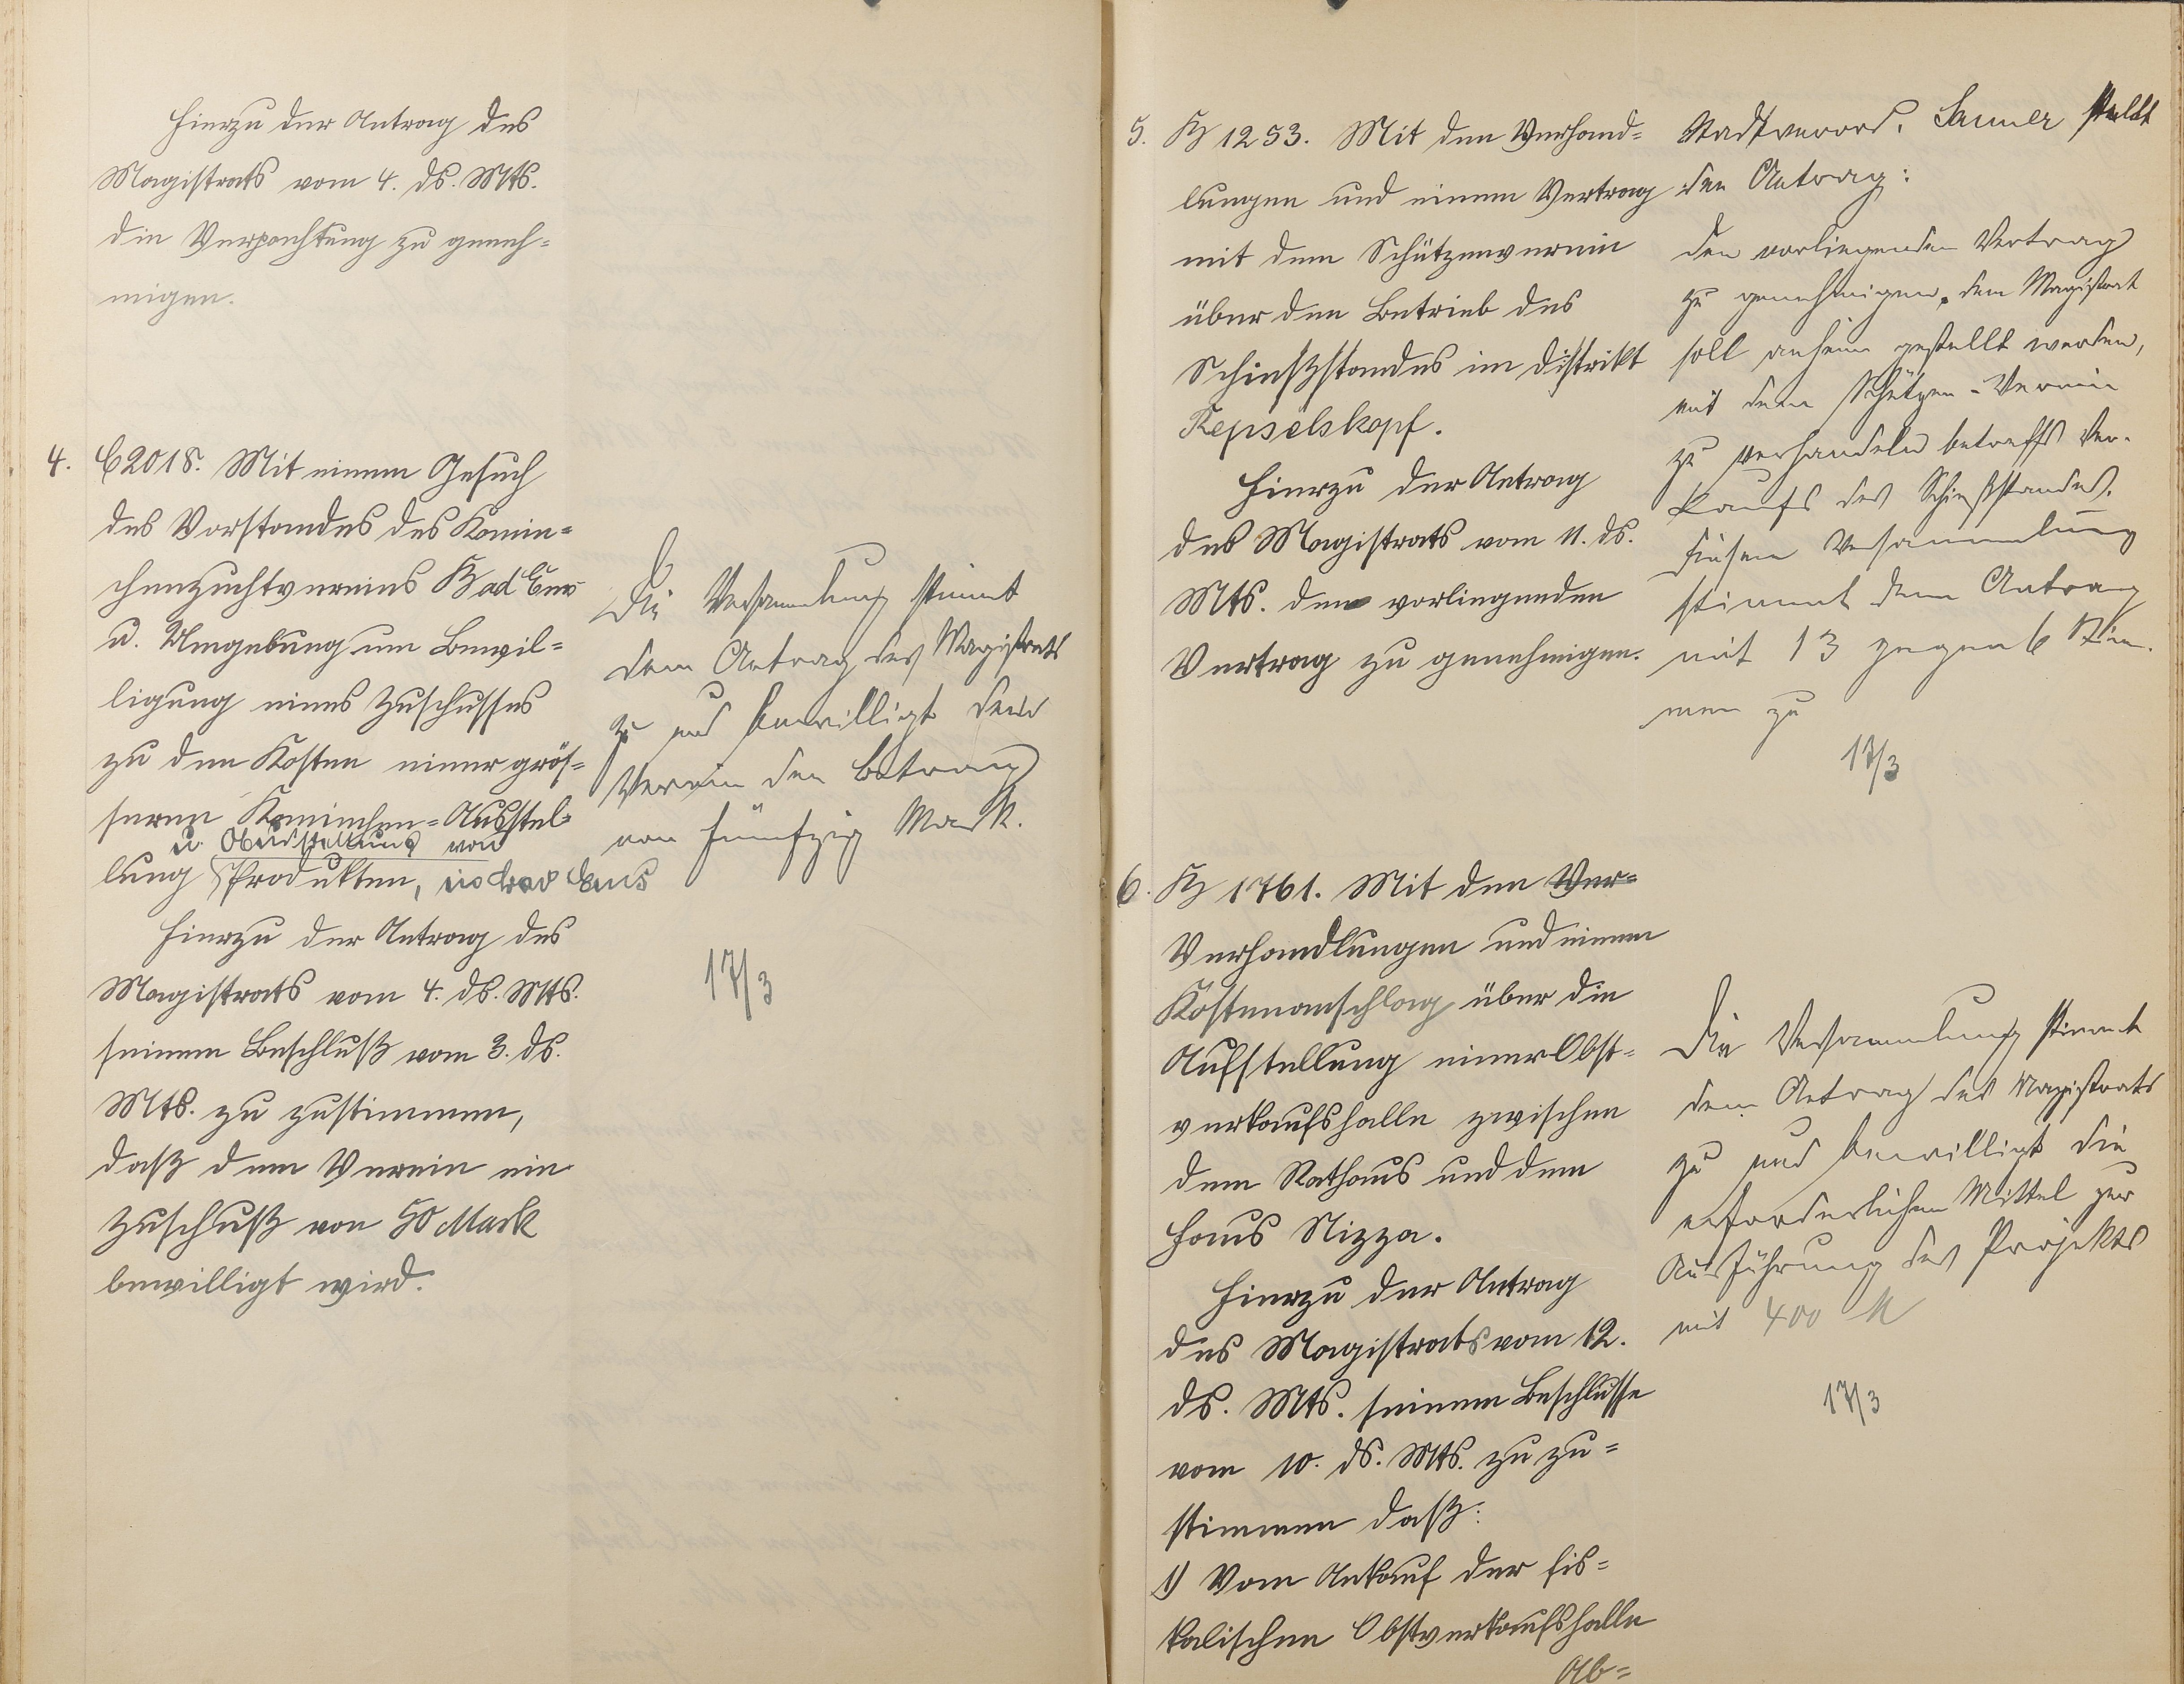 Hierzu der Antrag des
Magistrats vom 4. ds. Mts.
die Verpachtung zu geneh=
migen.
4. C 2018. Mit einem Gesuch
des Vorstandes des Kanin=
chenzuchtvereins Bad Ems
u. Umgebung um Bewil=
ligung eines Zuschusses
zu den Kosten einer grös=
seren Kaninchen=Ausstel=
u. von
lung Produkten, in Bad Ems
Hierzu der Antrag des
Magistrats vom 4. ds. Mts.
seinem Beschluß vom 3. ds.
Mts. zu zustimmen,
daß dem Verein ein
Zuschuß von 50 Mark
bewilligt wird.
Die Versammlung stimmt
dem Antrag des Magistrats
zu und bewilligt dem
Verein den Betrag
von fünfzig Mark.
17/3
5. B 1253. Mit den Verhand=
lungen und einem Vertrag
mit dem Schützenverein
über den Betrieb des
Schießstandes im Distrikt
Kepselskopf.
Hierzu der Antrag
des Magistrats vom 11. ds.
Mts. den vorliegenden
Vertrag zu genehmigen.
Stadtverord. Sauer stellt
den Antrag:
den vorliegenden Vertrag
zu genehmigen, dem Magistrat
soll anheim gestellt werden,
mit dem Schützen-Verein
zu verhandeln betreffs Ver-
kaufs des Schießstandes.
Versammlung
stimmt dem Antrag
mit 13 gegen 6 Stim-
men zu
17/3
6. B 1761. Mit den Ver=
Verhandlungen und einem
Kostenanschlag über die
Aufstellung einer Obst=
verkaufshalle zwischen
dem Rathaus und dem
Haus Nizza.
Hierzu der Antrag
des Magistrats vom 12.
ds. Mts. seinem Beschlusse
vom 10. ds. Mts. zu zu=
stimmen daß:
1) Vom Ankauf der fis=
kalischen Obstverkaufshalle
Ab=
Die Versammlung stimmt
dem Antrag des Magistrats
zu und bewilligt die
erforderlichen Mittel zur
Ausführung des Projekts
mit 400 M
17/3